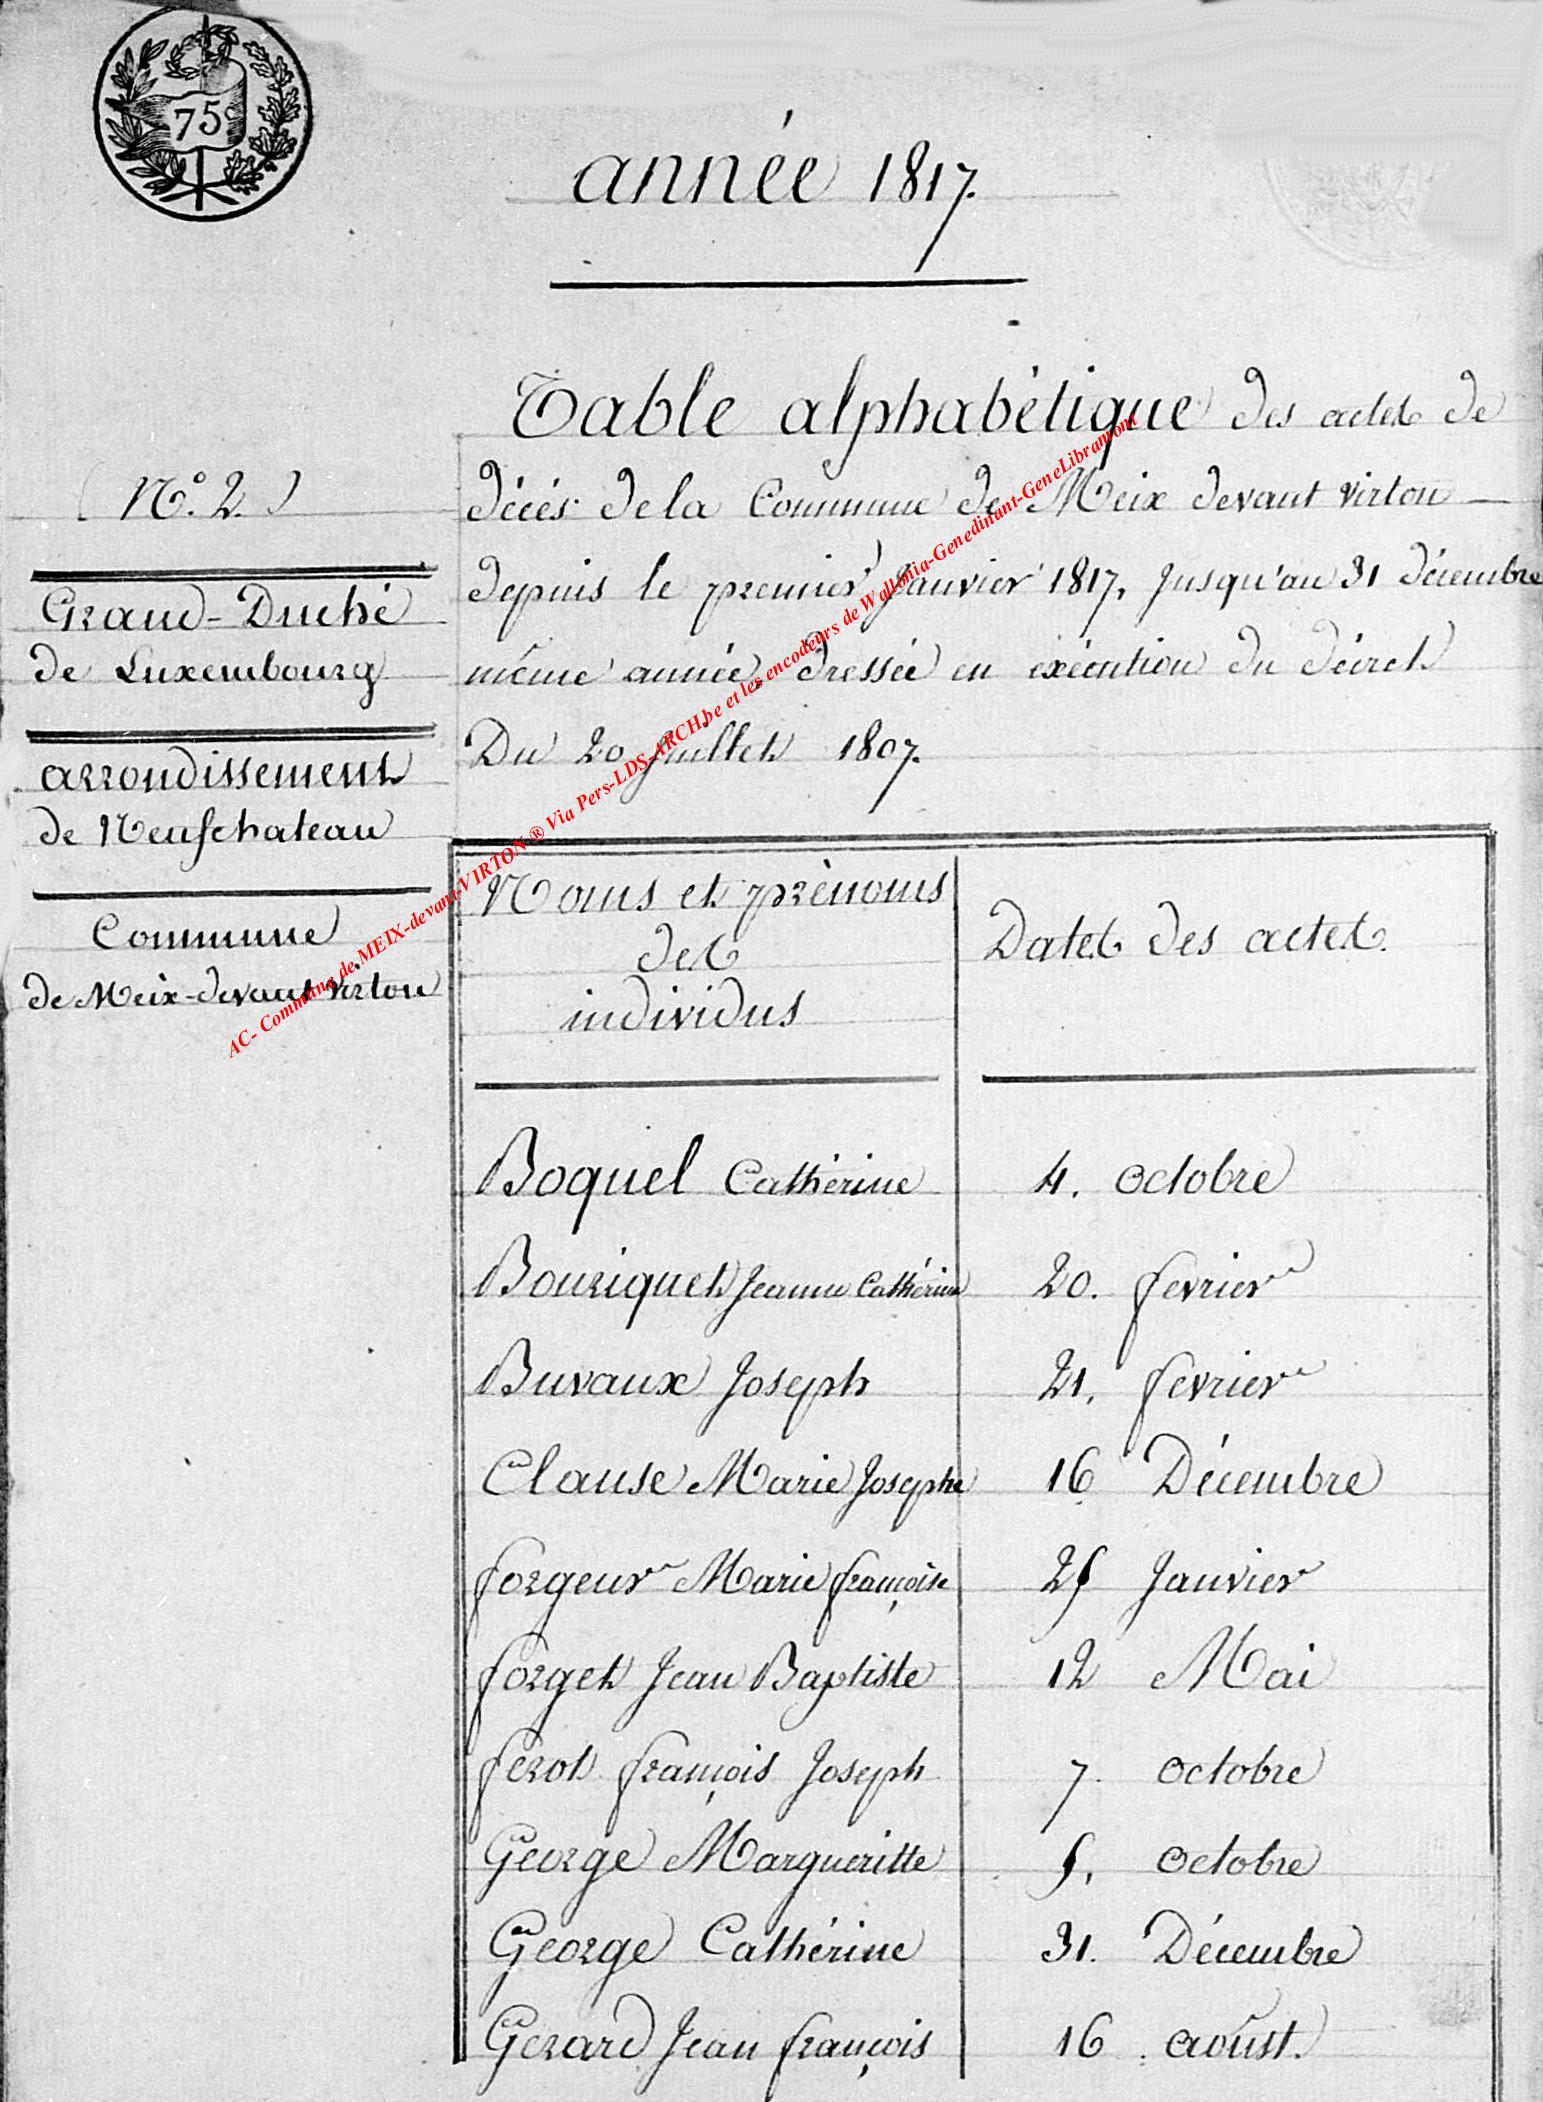 75c
année 1817.
Table alphabétique des actes de
décés de la Commune de Meix devant virton
depuis le premier Janvier 1817, Jusqu'au 31 décembre
même année, dressée en exécution du décret
Du 20 Juillet 1807.
(N.° 2.)
Grand-Duché
de Luxembourg
arrondissement
de Neufchateau
Commune
de Meix-devant virton
AC- Commune de MEIX-devant-VIRTON ® Via Pers-LDS-ARCH.be et les encodeurs de Wallonia-Genedinant-GeneLibramont
Noms et prénoms
des
individus
Dates des actes.
Boquel Cathérine 4. octobre
Bouriquet Jeanne Cathérine 20. fevrier
Buvaux Joseph 21. fevrier
Clause Marie Josephe 16 Décembre
forgeur Marie françoise 25 Janvier
forget Jean Baptiste 12 Mai
ferot françois Joseph 7. octobre
George Margueritte 5. octobre
George Cathérine 31. Décembre
Gerard Jean françois 16 aoûst.